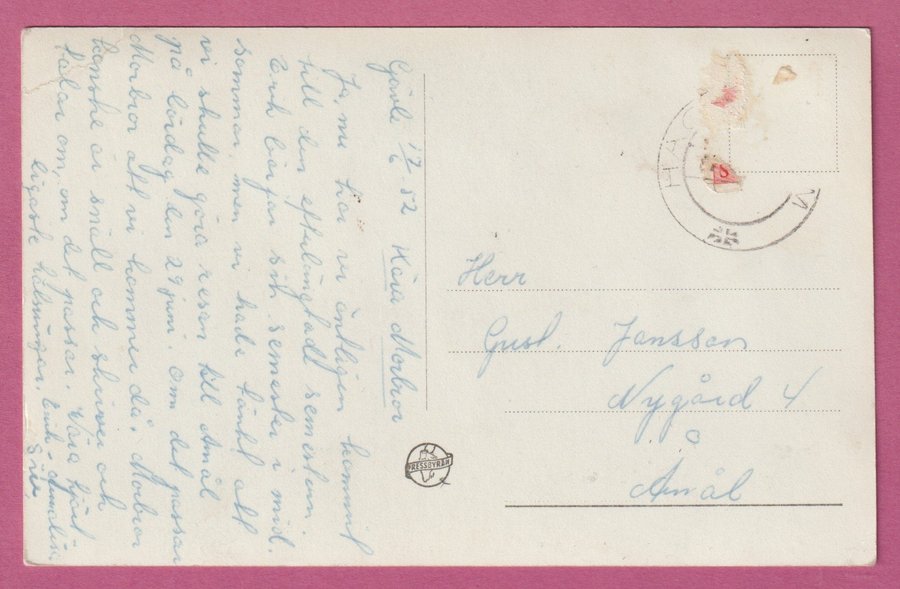 Gävle 17/6 52 Kära Morbror
Ja, nu har vi äntligen kommit
till den efterlängtade semestern.
Erik börjar sin semester i mid.
sommar, men vi hade tänkt att
vi skulle göra resan till Åmål
på lördag den 29 juni. om det passar
Morbror att vi kommer då. Morbror
kanske är snäll och skriver och
talar om, om det passar. Våra hjärt-
ligaste hälsningar. Erik - Annalisa
Siv.
Herr
Gust. Jansson
Nygård 4
Åmål
PRESSBYRÅN